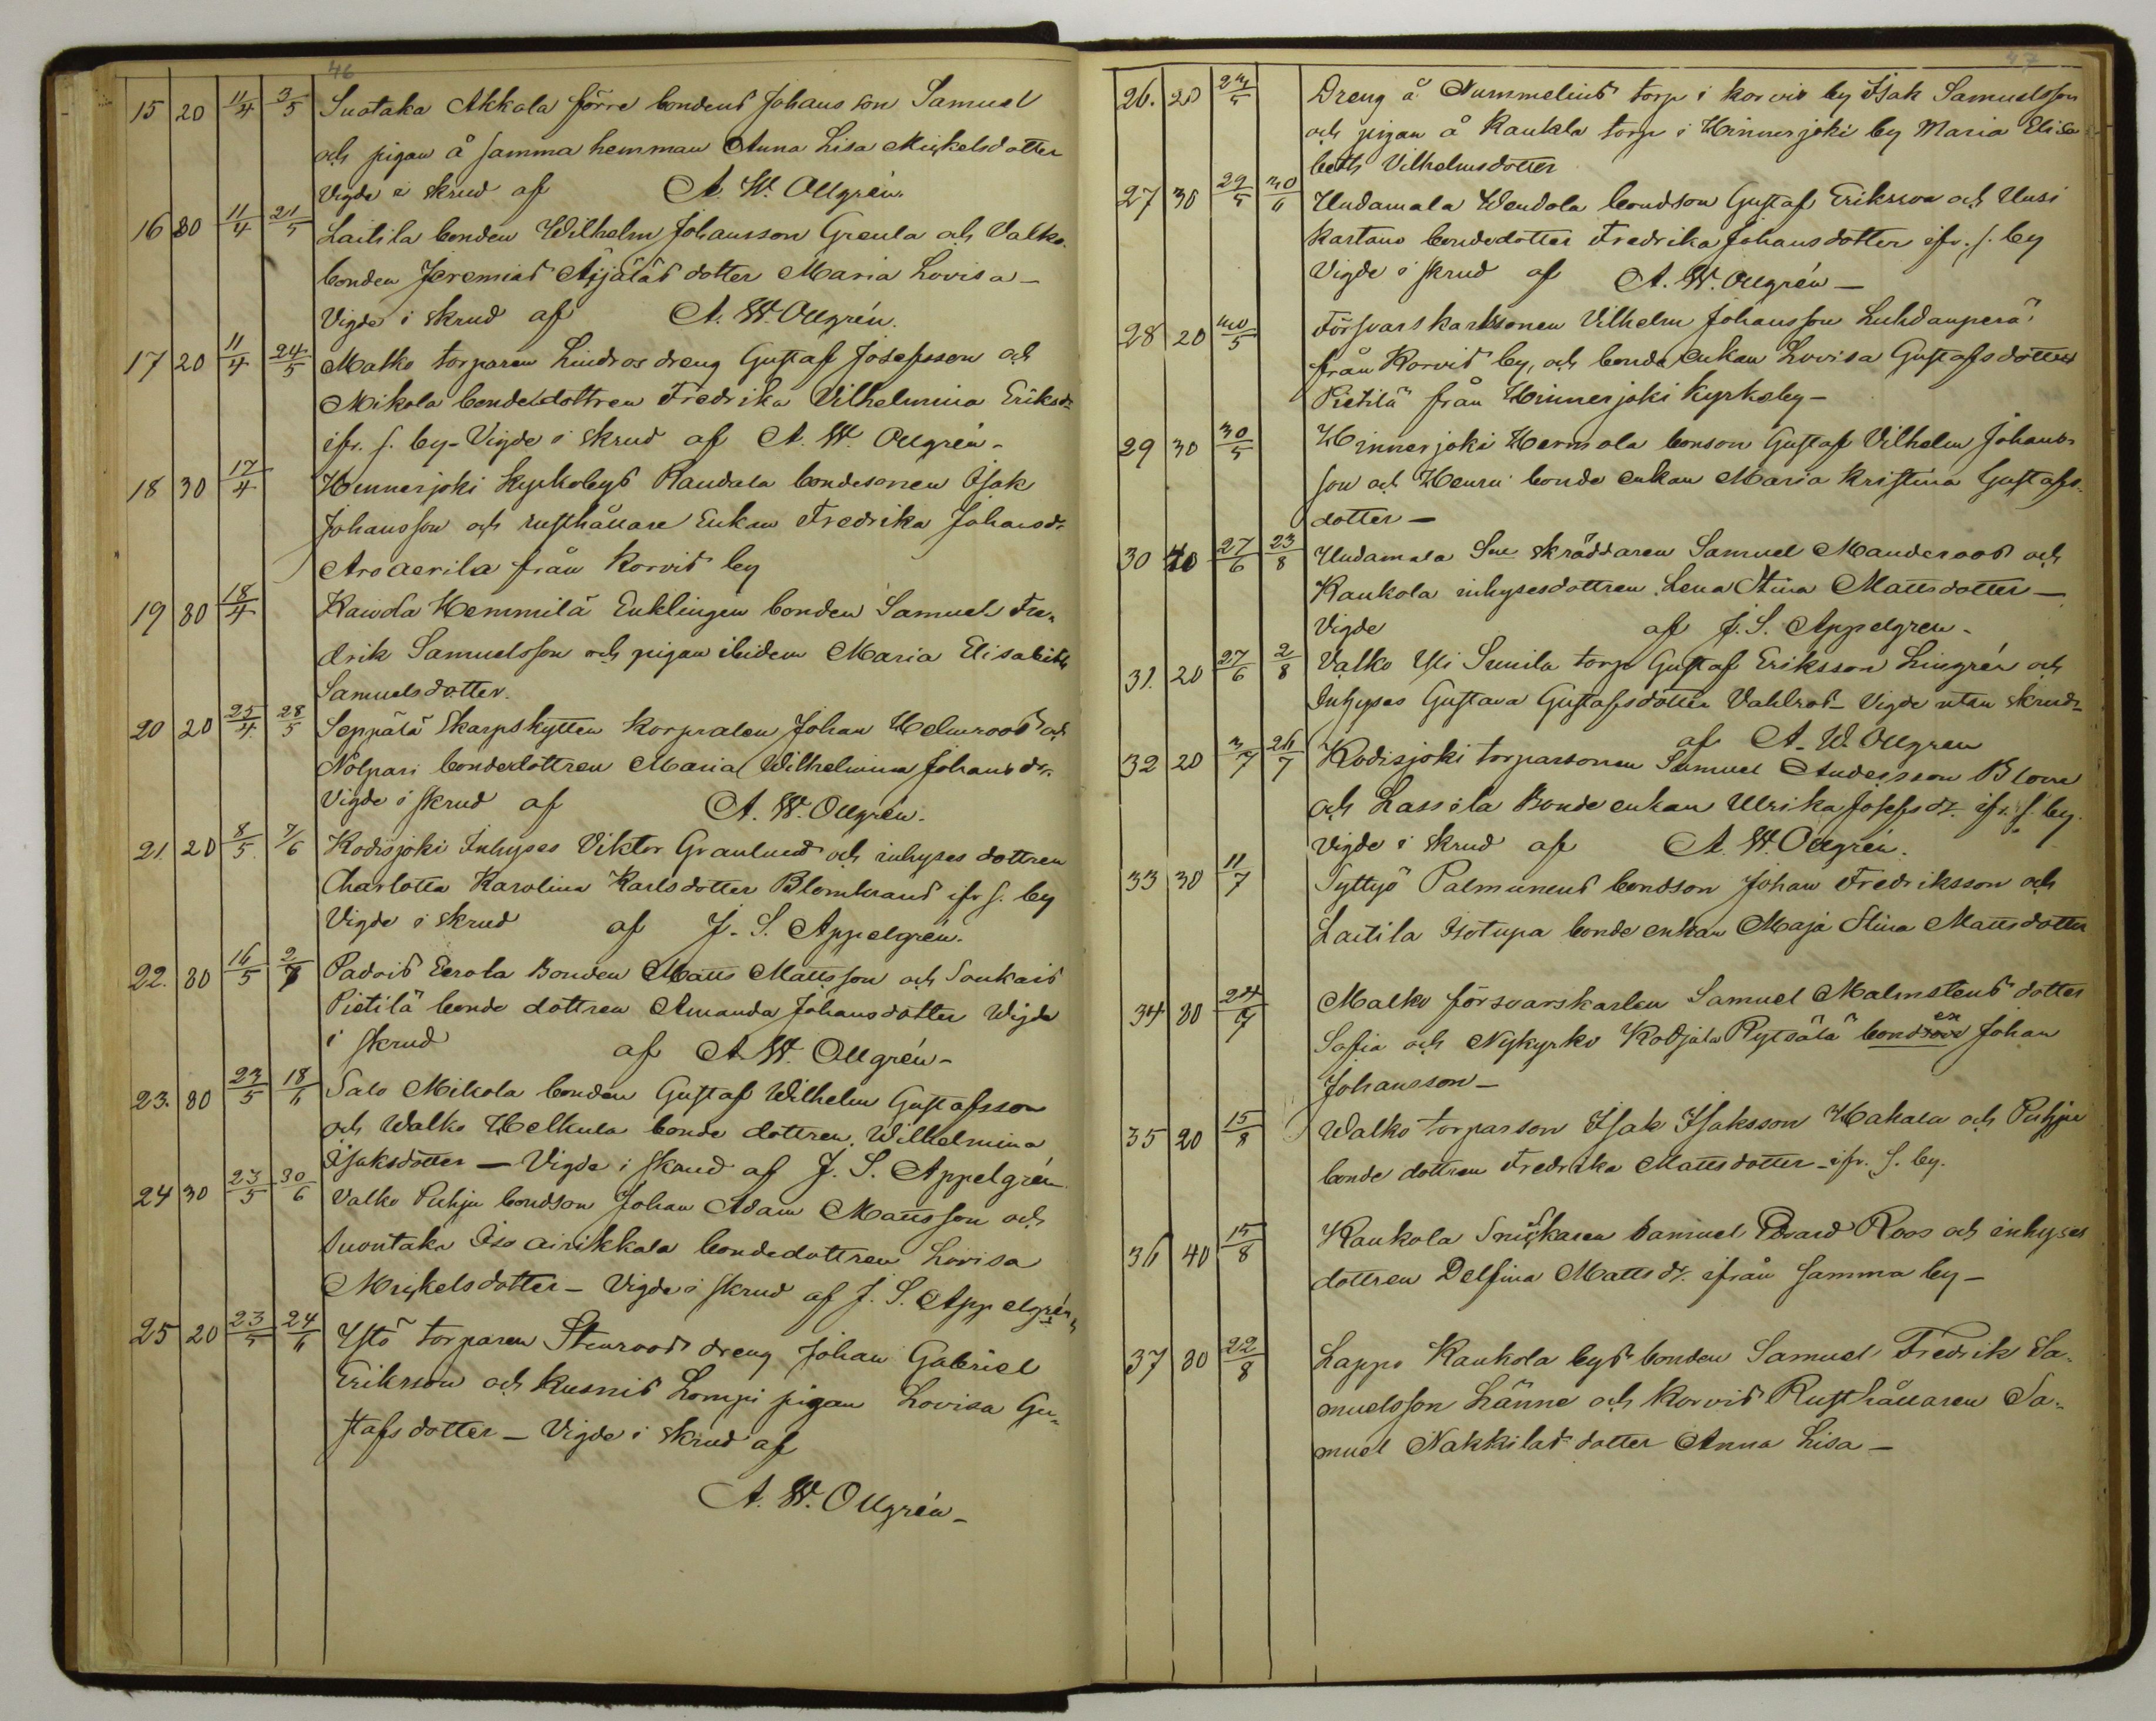 46
15 20 11/4 3/5 Suotaka Akkala förre bondens Johans son Samuel
och pigan å samma hemman Anna Lisa Mickelsdotter
Vigde i skrud af A. W. Ollgrén.
16 30 11/4 21/5 Laitila bonden Wilhelm Johansson Greula och Valko
bonden Jeremias Äijäläs dotter Maria Lovisa –
Vigde i skrud af A. W. Ollgrén.
17 20 11/4 24/5 Malko torparen Lindros dreng Gustaf Josefsson och
Mikola bondedottren Fredrika Vilhelmina Eriksdr
ifr. s. by – Vigde i skrud af A. W. Ollgrén –
18 30 17/4 Hinnerjoki Kyrkobys Raudala bondesonen Isak
Johansson och rusthållare Enkan Fredrika Johansdr
från Korvis by
19 30 18/4 Hemmilä Enklingen bonden Samuel Fre-
drik Samuelsson och pigan ibidem Maria Elisabeth
Samuelsdotter.
20 20 25/4 28/5 Seppälä Skarpskytten Korpralen Johan Helmroos och
Nolpari bondedottren Maria Wilhelmina Johansdr.
Vigde i skrud af A. W. Ollgrén.
21. 20 8/5 7/6 Kodisjoki Inhyses Viktor Granlund och inhyses dottren
Charlotta Karolina Karlsdotter Blomstrand ifr s. by
Vigde i skrud af J. S. Appelgrén.
22. 30 16/5 2/7 Padois Eerola Bonden Matts Mattsson och Soukais
Pietilä bonde dottren Amanda Johansdotter Wigde
i skrud af A W. Ollgrén –
23. 30 23/5 18/6 Salo Mikola bonden Gustaf Wilhelm Gustafsson
och Walko Helkula bonde dottren Wilhelmina
Isaksdotter – Vigde i skrud af J. S. Appelgrén
24 30 23/5 30/6 Valko Puhju bondson Johan Adam Mattsson och
Suontaka Iso airikkala bondedottren Lovisa
Mickelsdotter – Vigde i skrud af J. S. Appelgrén
25 20 23/5 24/6 Ylö torparen Stenroos dreng Johan Gabriel
Eriksson och Kusnis Lompi pigan Lovisa Gu-
stafsdotter – Vigde i skrud af
A. W. Ollgrén –
47
26. 20 24/5 Dreng å Nummelins torp i Korvis by Isak Samuelsson
och pigan å Kaukla torp i Hinnerjoki by Maria Elisa
beth Vilhelmsdotter
27 30 29/5 30/6 Undamala Wendola bondson Gustaf Eriksson och Uusi
kartano bondedotter Fredrika Johansdotter ifr. s. by
Vigde i skrud af A. W. Ollgrén –
28 20 30/5 Försvarskarlssonen Vilhelm Johansson Luhdanperä
från Korvis by, och bonde enkan Lovisa Gustafsdotter
Pietilä från Hinnerjoki Kyrkoby –
29 30 30/5 Hinnerjoki Hermola bonson Gustaf Vilhelm Johans-
son och Heuru bonde enkan Maria Kristina Gustafs-
dotter –
30 40 27/6 23/8 Undamala skräddaren Samuel Manderoos och
Kaukola inhysesdottren Lena Stina Mattsdotter –
Vigde af J. S. Appelgren –
31. 20 27/6 2/8 Valko Yli Sunila torp Gustaf Eriksson Lingrén och
Inhyses Gustava Gustafsdotter Vahlros – Vigde utan skrud
af A. W. Ollgren
32 20 3/7 26/7 Kodisjoki torparsonen Samuel Andersson Blom
och Lassila Bonde enkan Ulrika Josefsdr. ifr. s. by.
Vigde i skrud af A. W. Ollgrén.
33 30 11/7 Tyttyö Palmunens bondson Johan Fredriksson och
Laitila Isotupa bonde enkan Maja Stina Mattsdotter
34 30 24/7 Malko försvarskarlen Samuel Malmstens dotter
Sofia och Nykyrko Kodjala Rytsälä bonden Johan
Johansson –
35 20 15/8 Walko torparson Isak Isaksson Hakala och Puhju
bonde dottren Fredrika Mattsdotter – ifr. s. by.
36 40 15/8 Kaukola Snickaren Samuel Edvard Roos och inhyses
dottren Delfina Mattsdr. ifrån samma by –
37 30 22/8 Lappo Kaukola bys bonden Samuel Fredrik Sa-
muelsson Länne och Korvis Rusthållaren Sa-
muel Nakkilas dotter Anna Lisa –